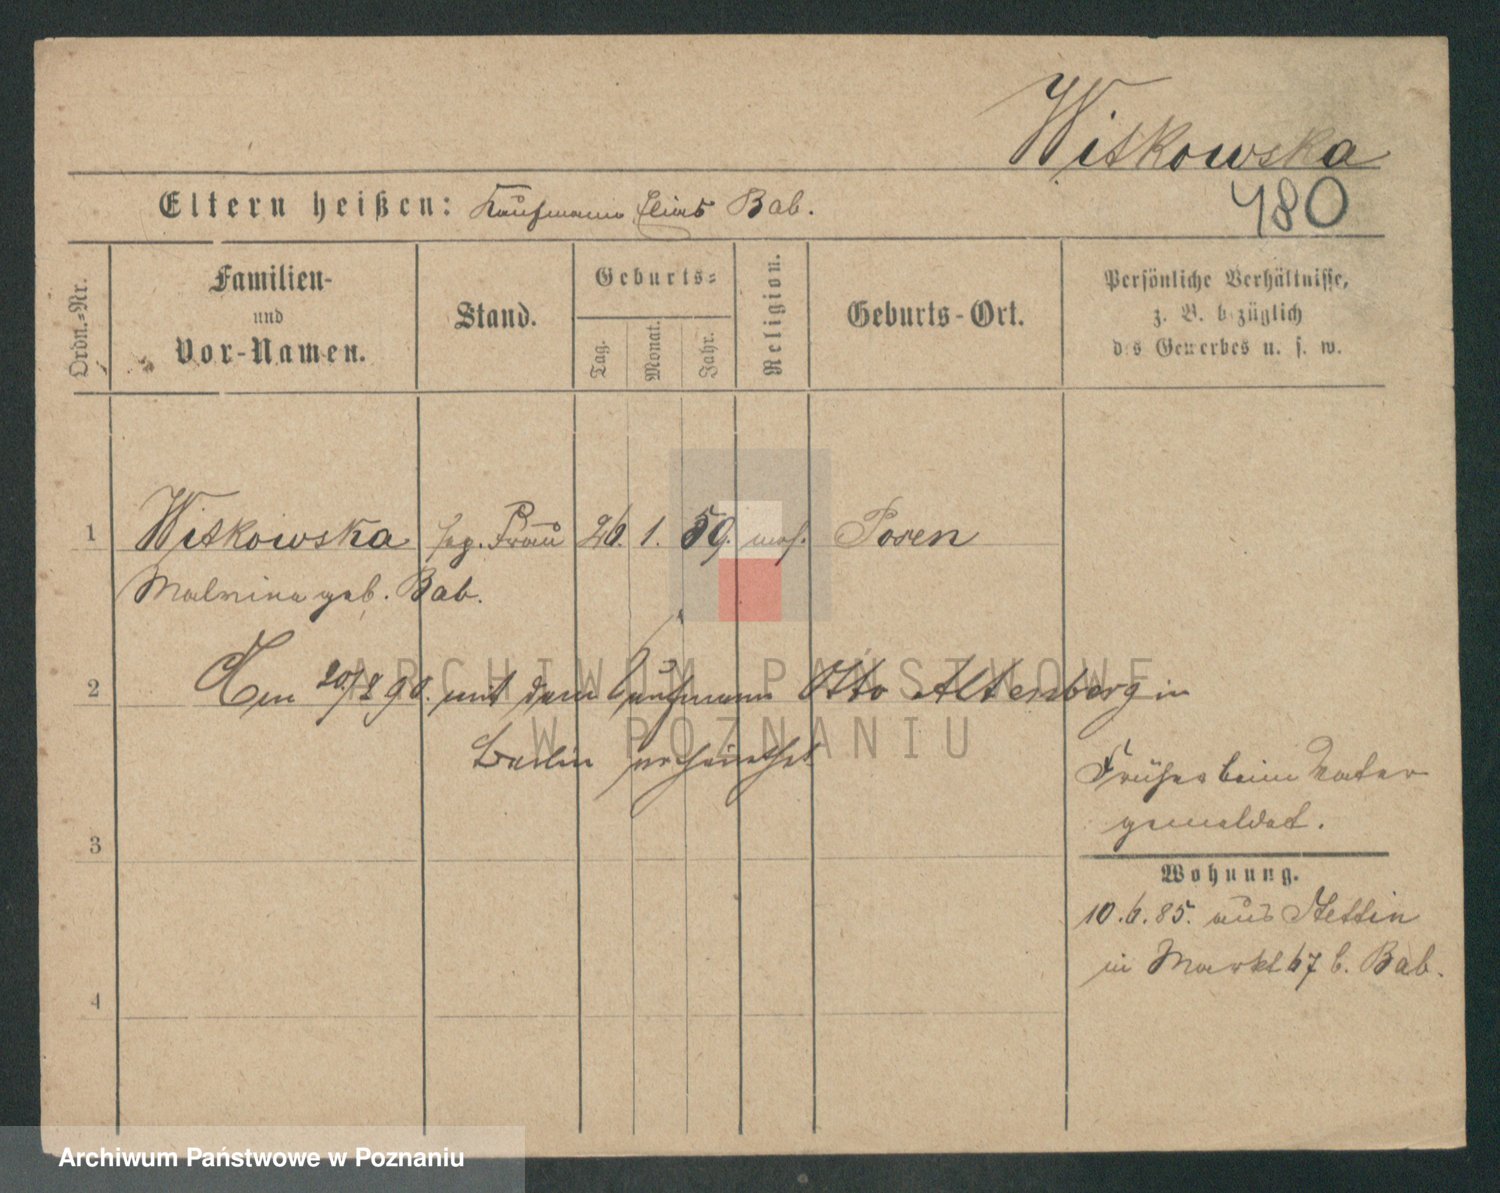 Witkowska
480
Eltern heißen: Kaufmann Elias Bab.
Ordn.-Nr.
Familien-
und
Vor-Namen.
Stand.
Geburts-
Tag.
Monat.
Jahr.
Religion.
Geburts-Ort.
Persönliche Verhältnisse,
z. B. bezüglich
des Gewerbes u. s. w.
1 Witkowska Frau 26. 1. 59. mos. Posen
Malvina geb. Bab.
2 Am 20/8 90. mit dem Kaufmann Otto Altersberg in
Berlin verheirathet
Früher beim Vater
gemeldet.
3
Wohnung.
10.6.85. aus Stettin
in Markt 67 b. Bab.
4
ARCHIWUM PAŃSTWOWE
W POZNANIU
Archiwum Państwowe w Poznaniu